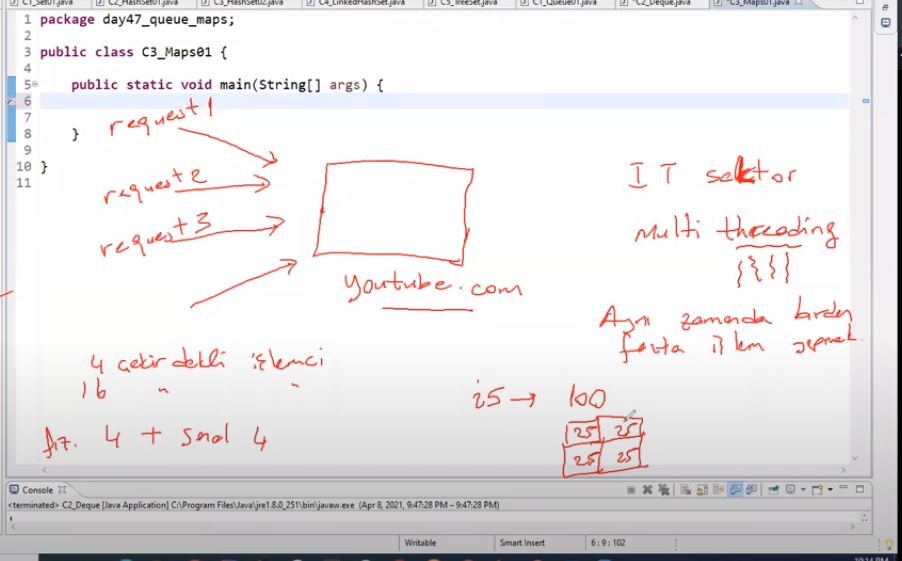 C1_Set01.java C2_HashSet01.java C3_HashSet02.java C4_LinkedHashSet.java C5_TreeSet.java C1_Queue01.java *C2_Deque.java *C3_Maps01.java
1 package day47_queue_maps;
2
3 public class C3_Maps01 {
4
5 public static void main(String[] args) {
6
7
8 }
9
10 }
11
request 1
request 2
request 3
youtube.com
IT sektor
Multi threading
Aynı zamanda birden
fazla işlem yapmak.
4 çekirdekli işlemci
16 " "
fiz. 4 + sanal 4
i5 → 100
25 25
25 25
Console
<terminated> C2_Deque [Java Application] C:\Program Files\Java\jre1.8.0_251\bin\javaw.exe (Apr 8, 2021, 9:47:28 PM – 9:47:28 PM)
Writable Smart Insert 6 : 9 : 102
10:14 PM